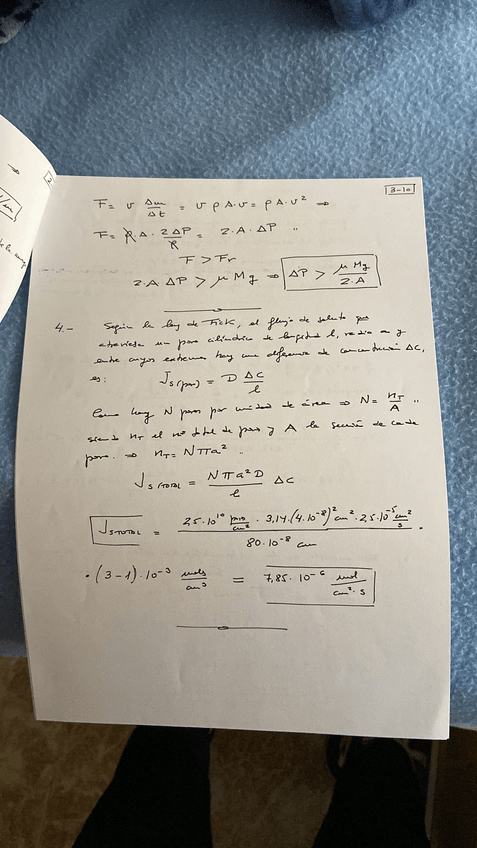 3-10
F = v Δm/Δt = v ρ A·v = ρ A·v² ⇒
F = ρ·A· 2ΔP/ρ = 2·A·ΔP "
F > Fr
2·A ΔP > μ Mg ⇒ ΔP > μ Mg / 2·A
4.- Según la ley de Fick, el flujo de soluto que
atraviesa un poro cilíndrico de longitud l, radio a y
entre cuyos extremos hay una diferencia de concentración ΔC,
es: Js(poro) = D ΔC/l
Como hay N poros por unidad de área ⇒ N = nT/A "
siendo nT el nº total de poros y A la sección de cada
poro. ⇒ nT = Nπa² "
Js/TOTAL = Nπa²D/l ΔC
Js-TOTAL = 2,5·10¹⁰ poro/cm² · 3,14·(4·10⁻⁸)² cm² · 2,5·10⁻⁵ cm²/s / 80·10⁻⁸ cm ·
· (3-1)·10⁻³ mols/cm³ = 7,85·10⁻⁶ mol/cm²·s